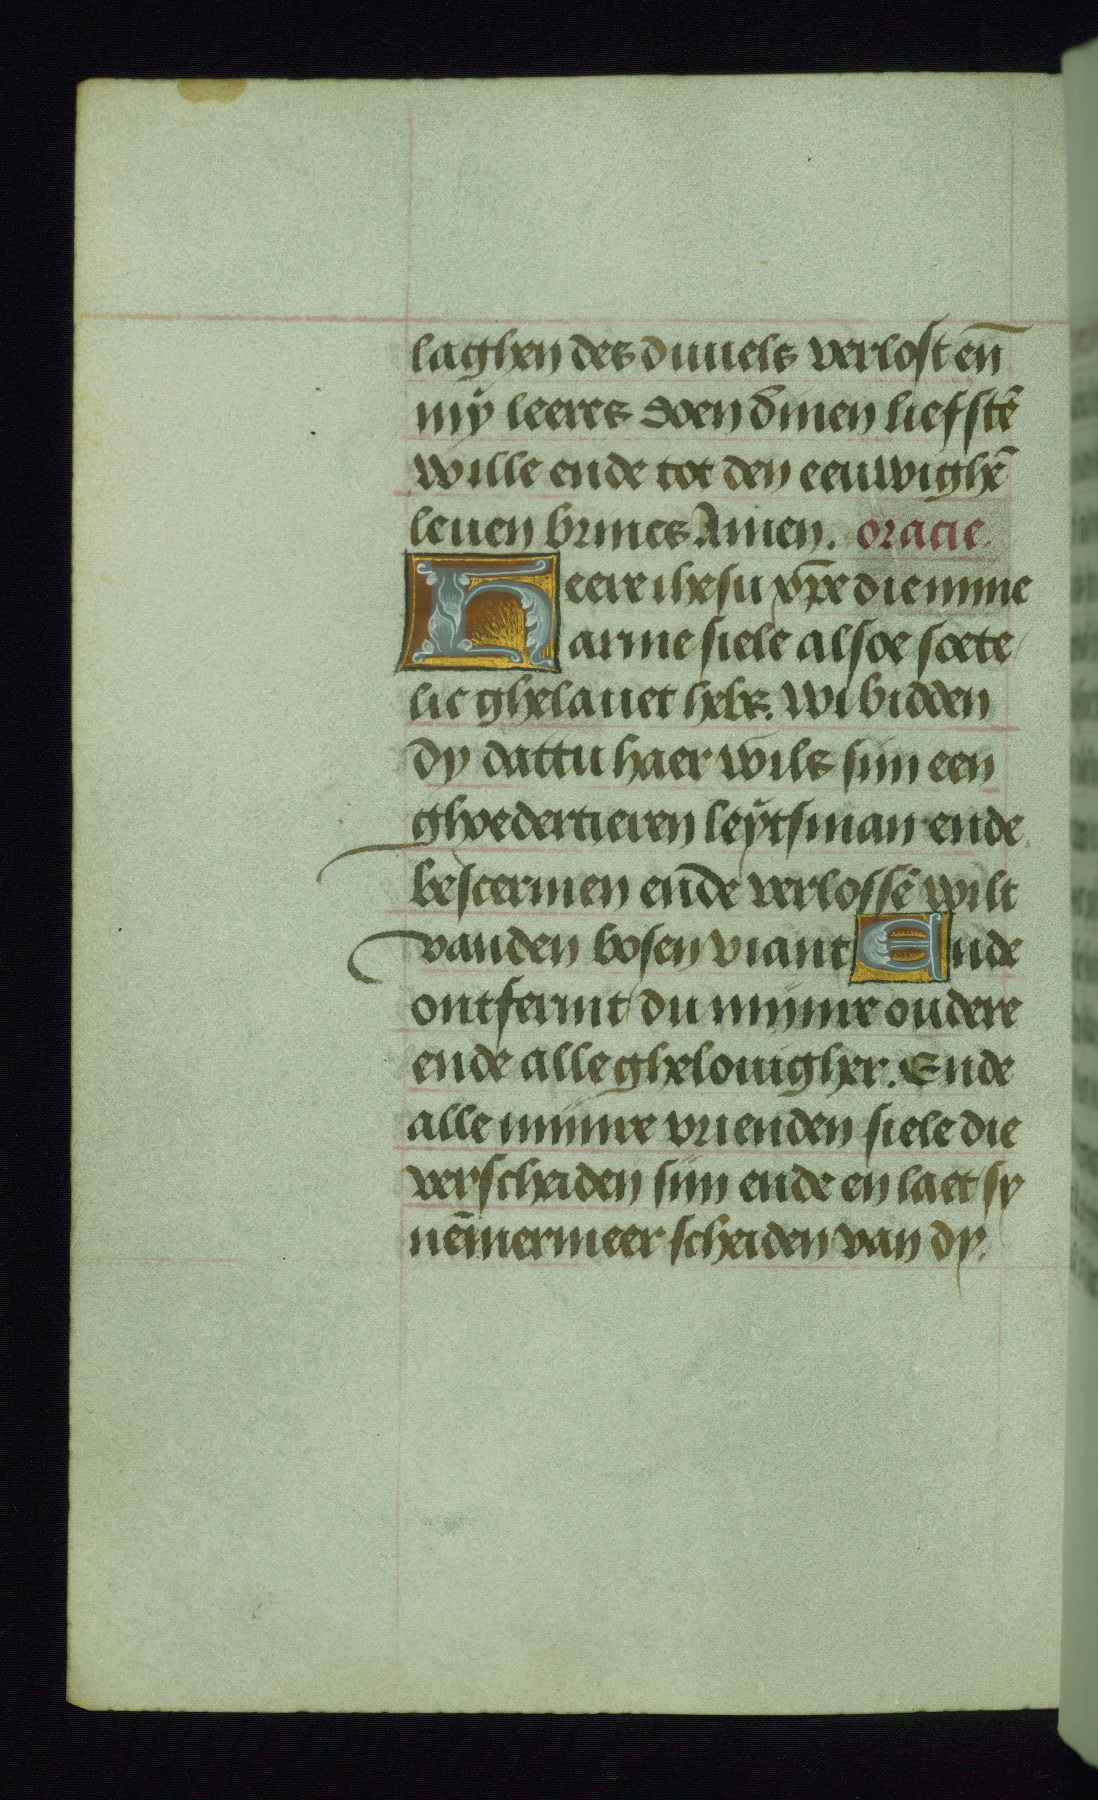 laghen des duuels verlost en̄
my leeres doen dīnen liefstē
wille ende tot den eeuwighē
leuen brincs Amen. oracie.
Heere ihesu xp̄e die mine
arme siele alsoe soete
lic ghelauet hebs. Wi bidden
dy dattu haer wils sijn een
ghoedertieren leytsman ende
bescermen ende verlossē wilt
vanden bosen viant Ende
ontfermt du mijnre oudere
ende alle ghelouigher. Ende
alle mijnre vrienden siele die
verscheiden sijn ende en laet sy
nēmermeer scheiden van dy.